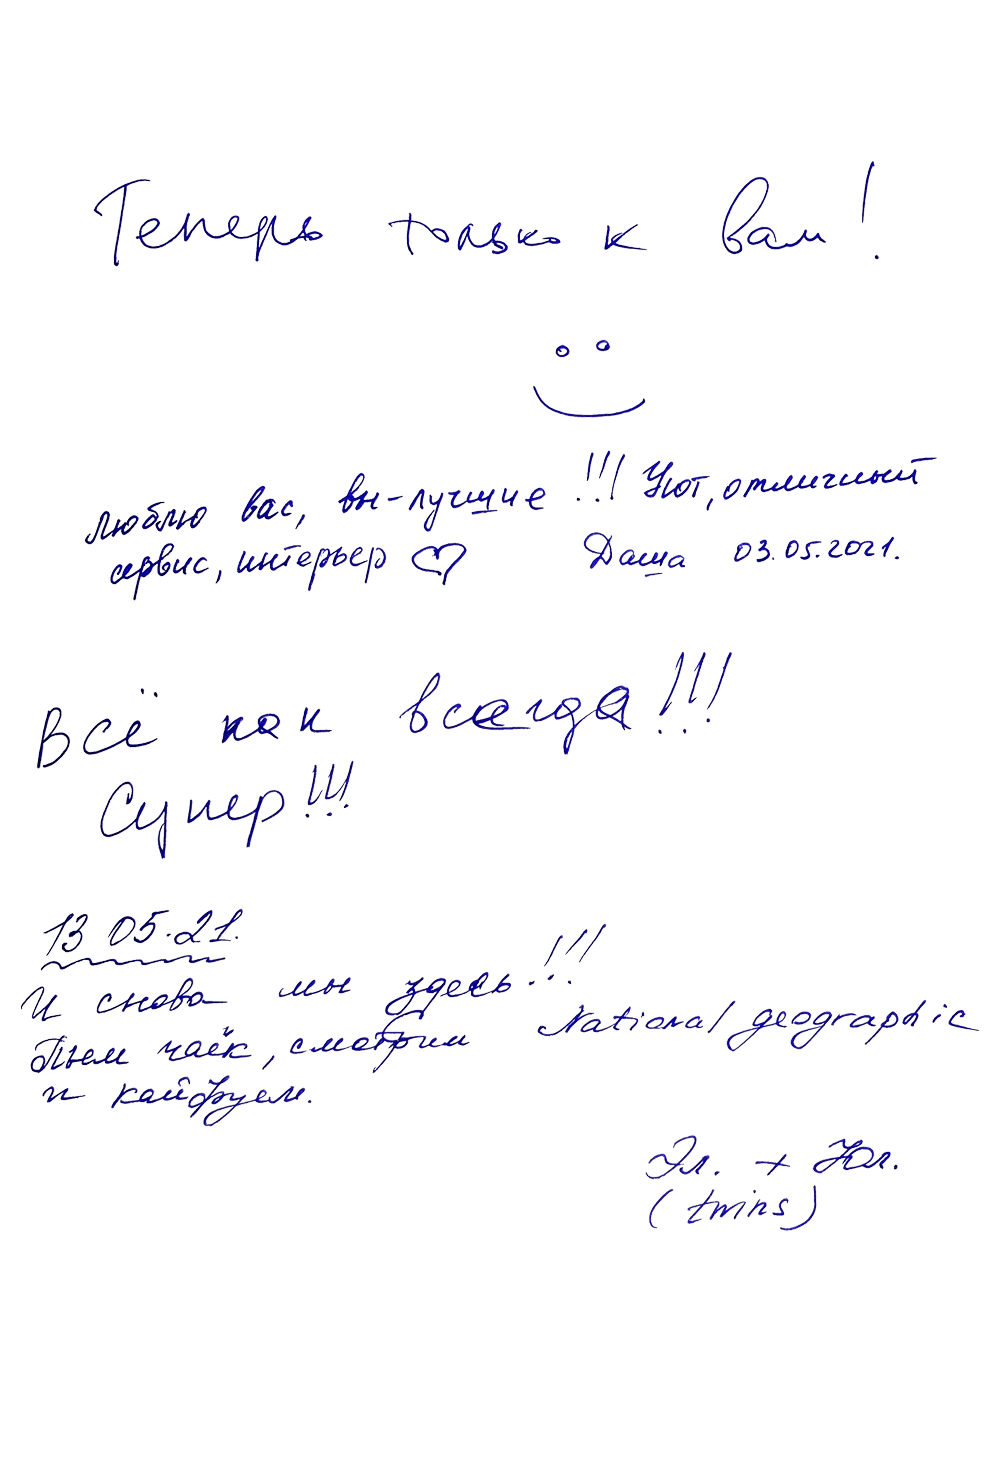 Теперь только к вам!
Люблю вас, вы-лучшие!!! Уют, отличный
сервис, интерьер ♡ Даша 03.05.2021.
Всё как всегда!!!
Супер!!!
13 05.21.
И снова мы здесь!!!
Пьем чаёк, смотрим National geographic
и кайфуем.
Эл. + Юл.
(twins)